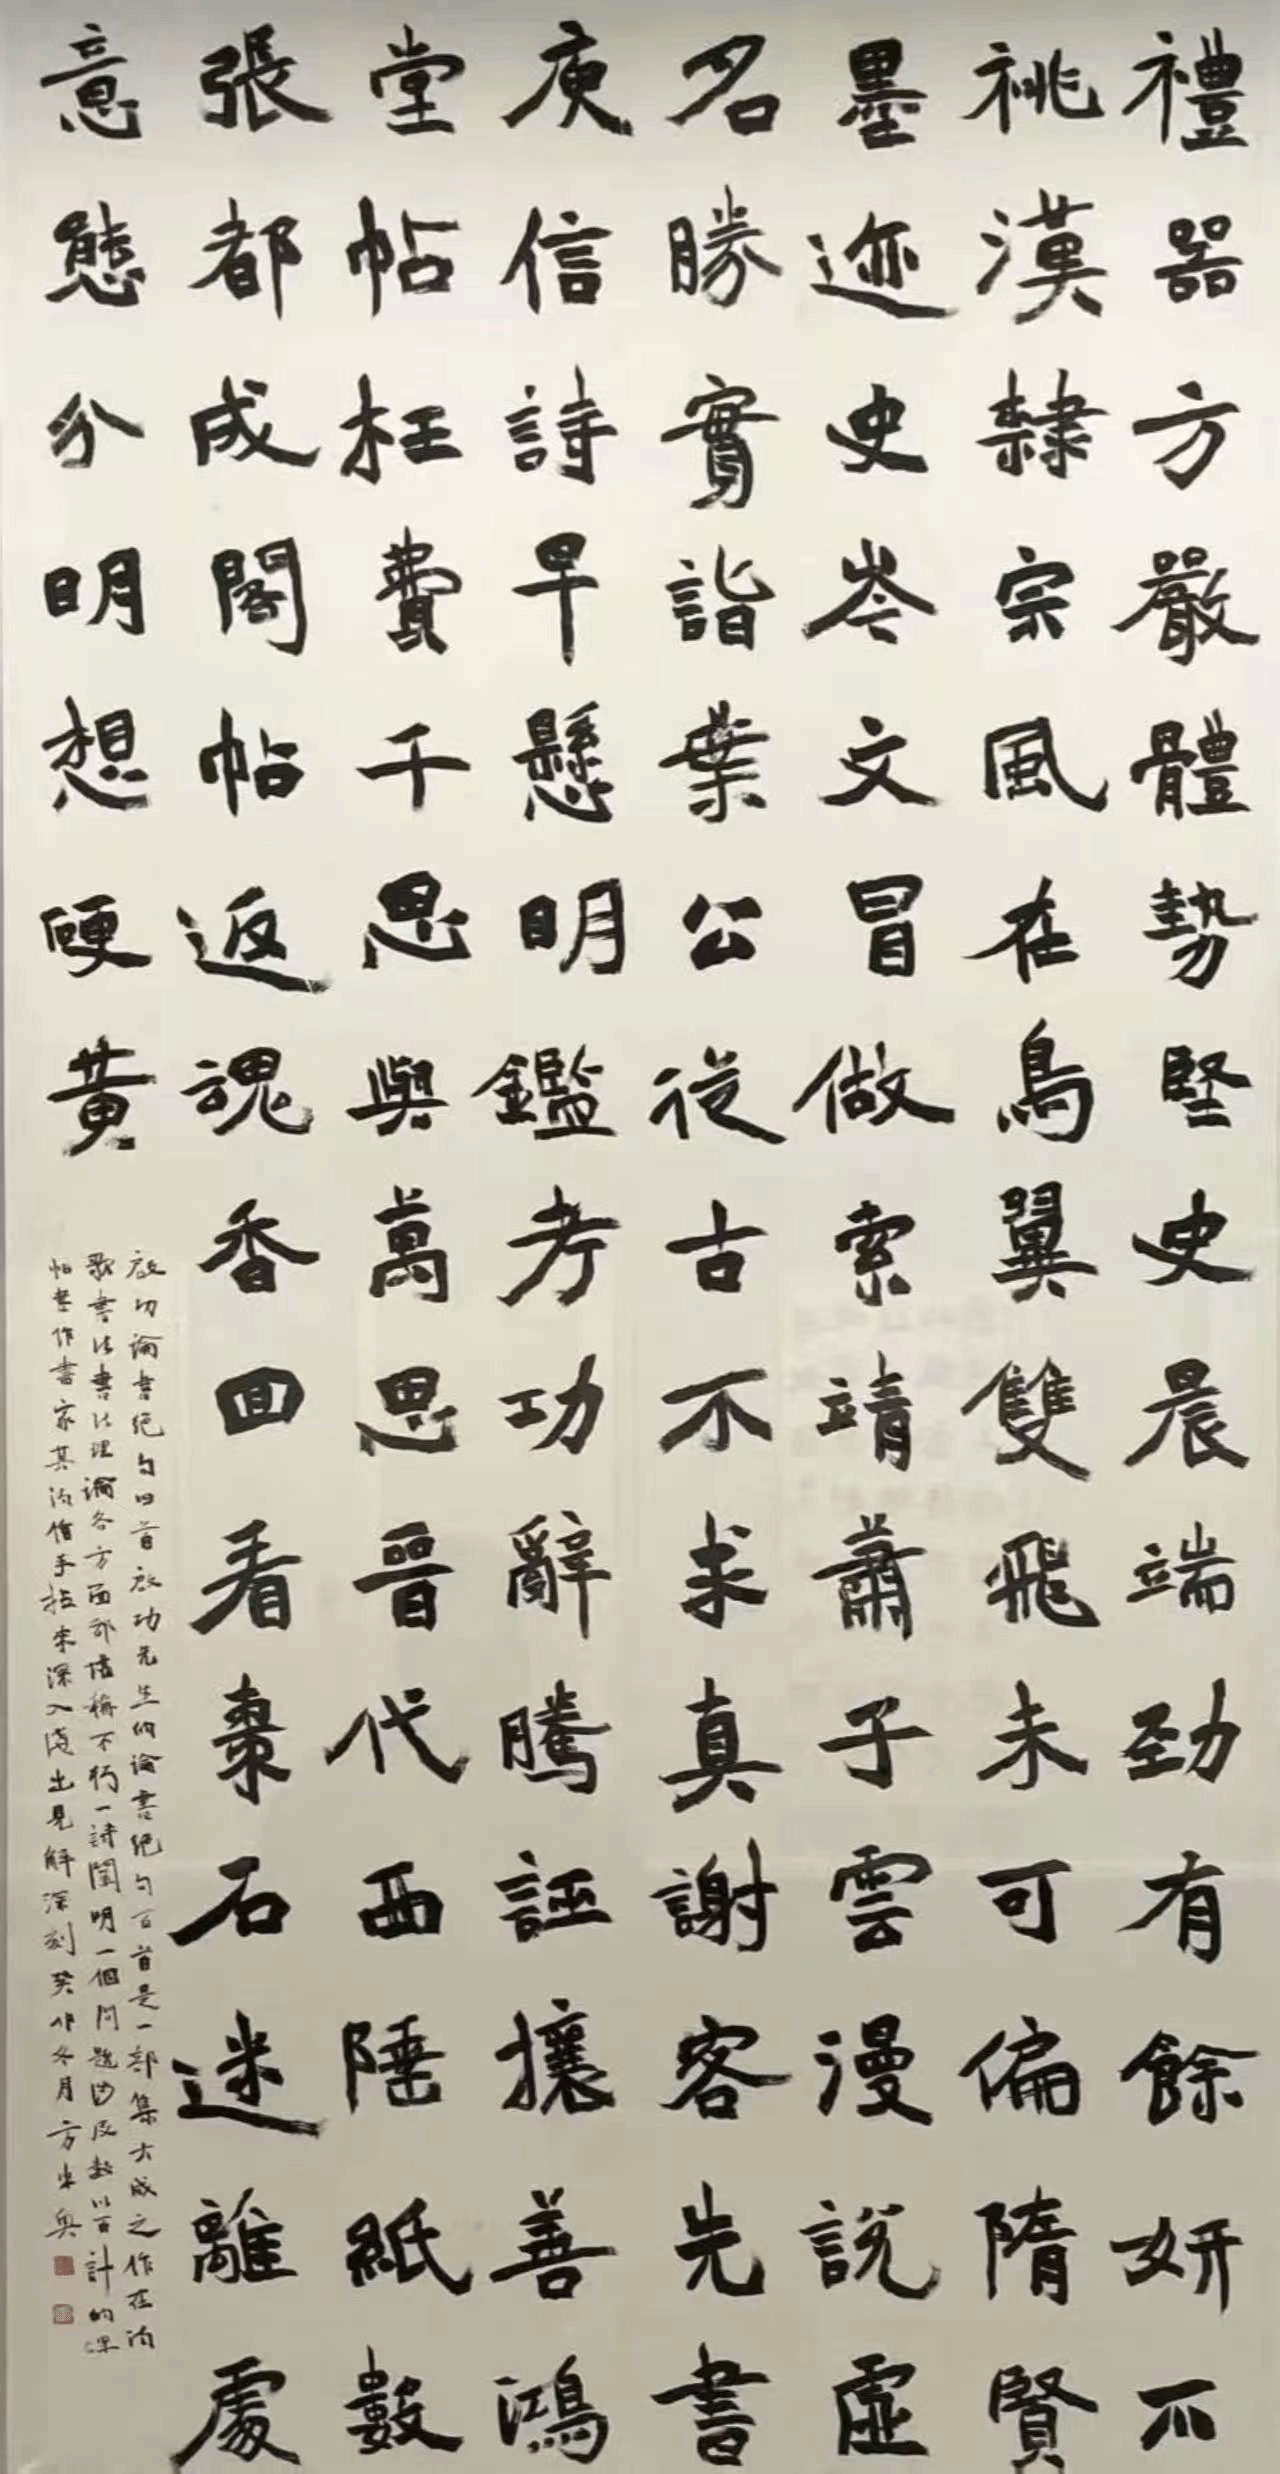 禮器方嚴體勢堅史晨端勁有餘妍不
祧漢隸宗風在鳥翼雙飛未可偏隋賢
墨迹史岑文冒做索靖蕭子雲漫說虛
名勝實詣葉公從古不求真謝客先書
庾信詩早懸明鑑考功辭騰誣攘善鴻
堂帖枉費千思與萬思晉代西陲紙數
張都成閣帖返魂香回看棗石迷離處
意態分明想硬黃
啟功論書絕句四首啟功先生的論書絕句百首是一部集大成之作在內
歌書法書法理論各方面都堪稱不朽一詩闡明一個問題涉及數以百計的碑
帖書作書家其內信手拈來深入淺出見解深刻癸卯冬月方